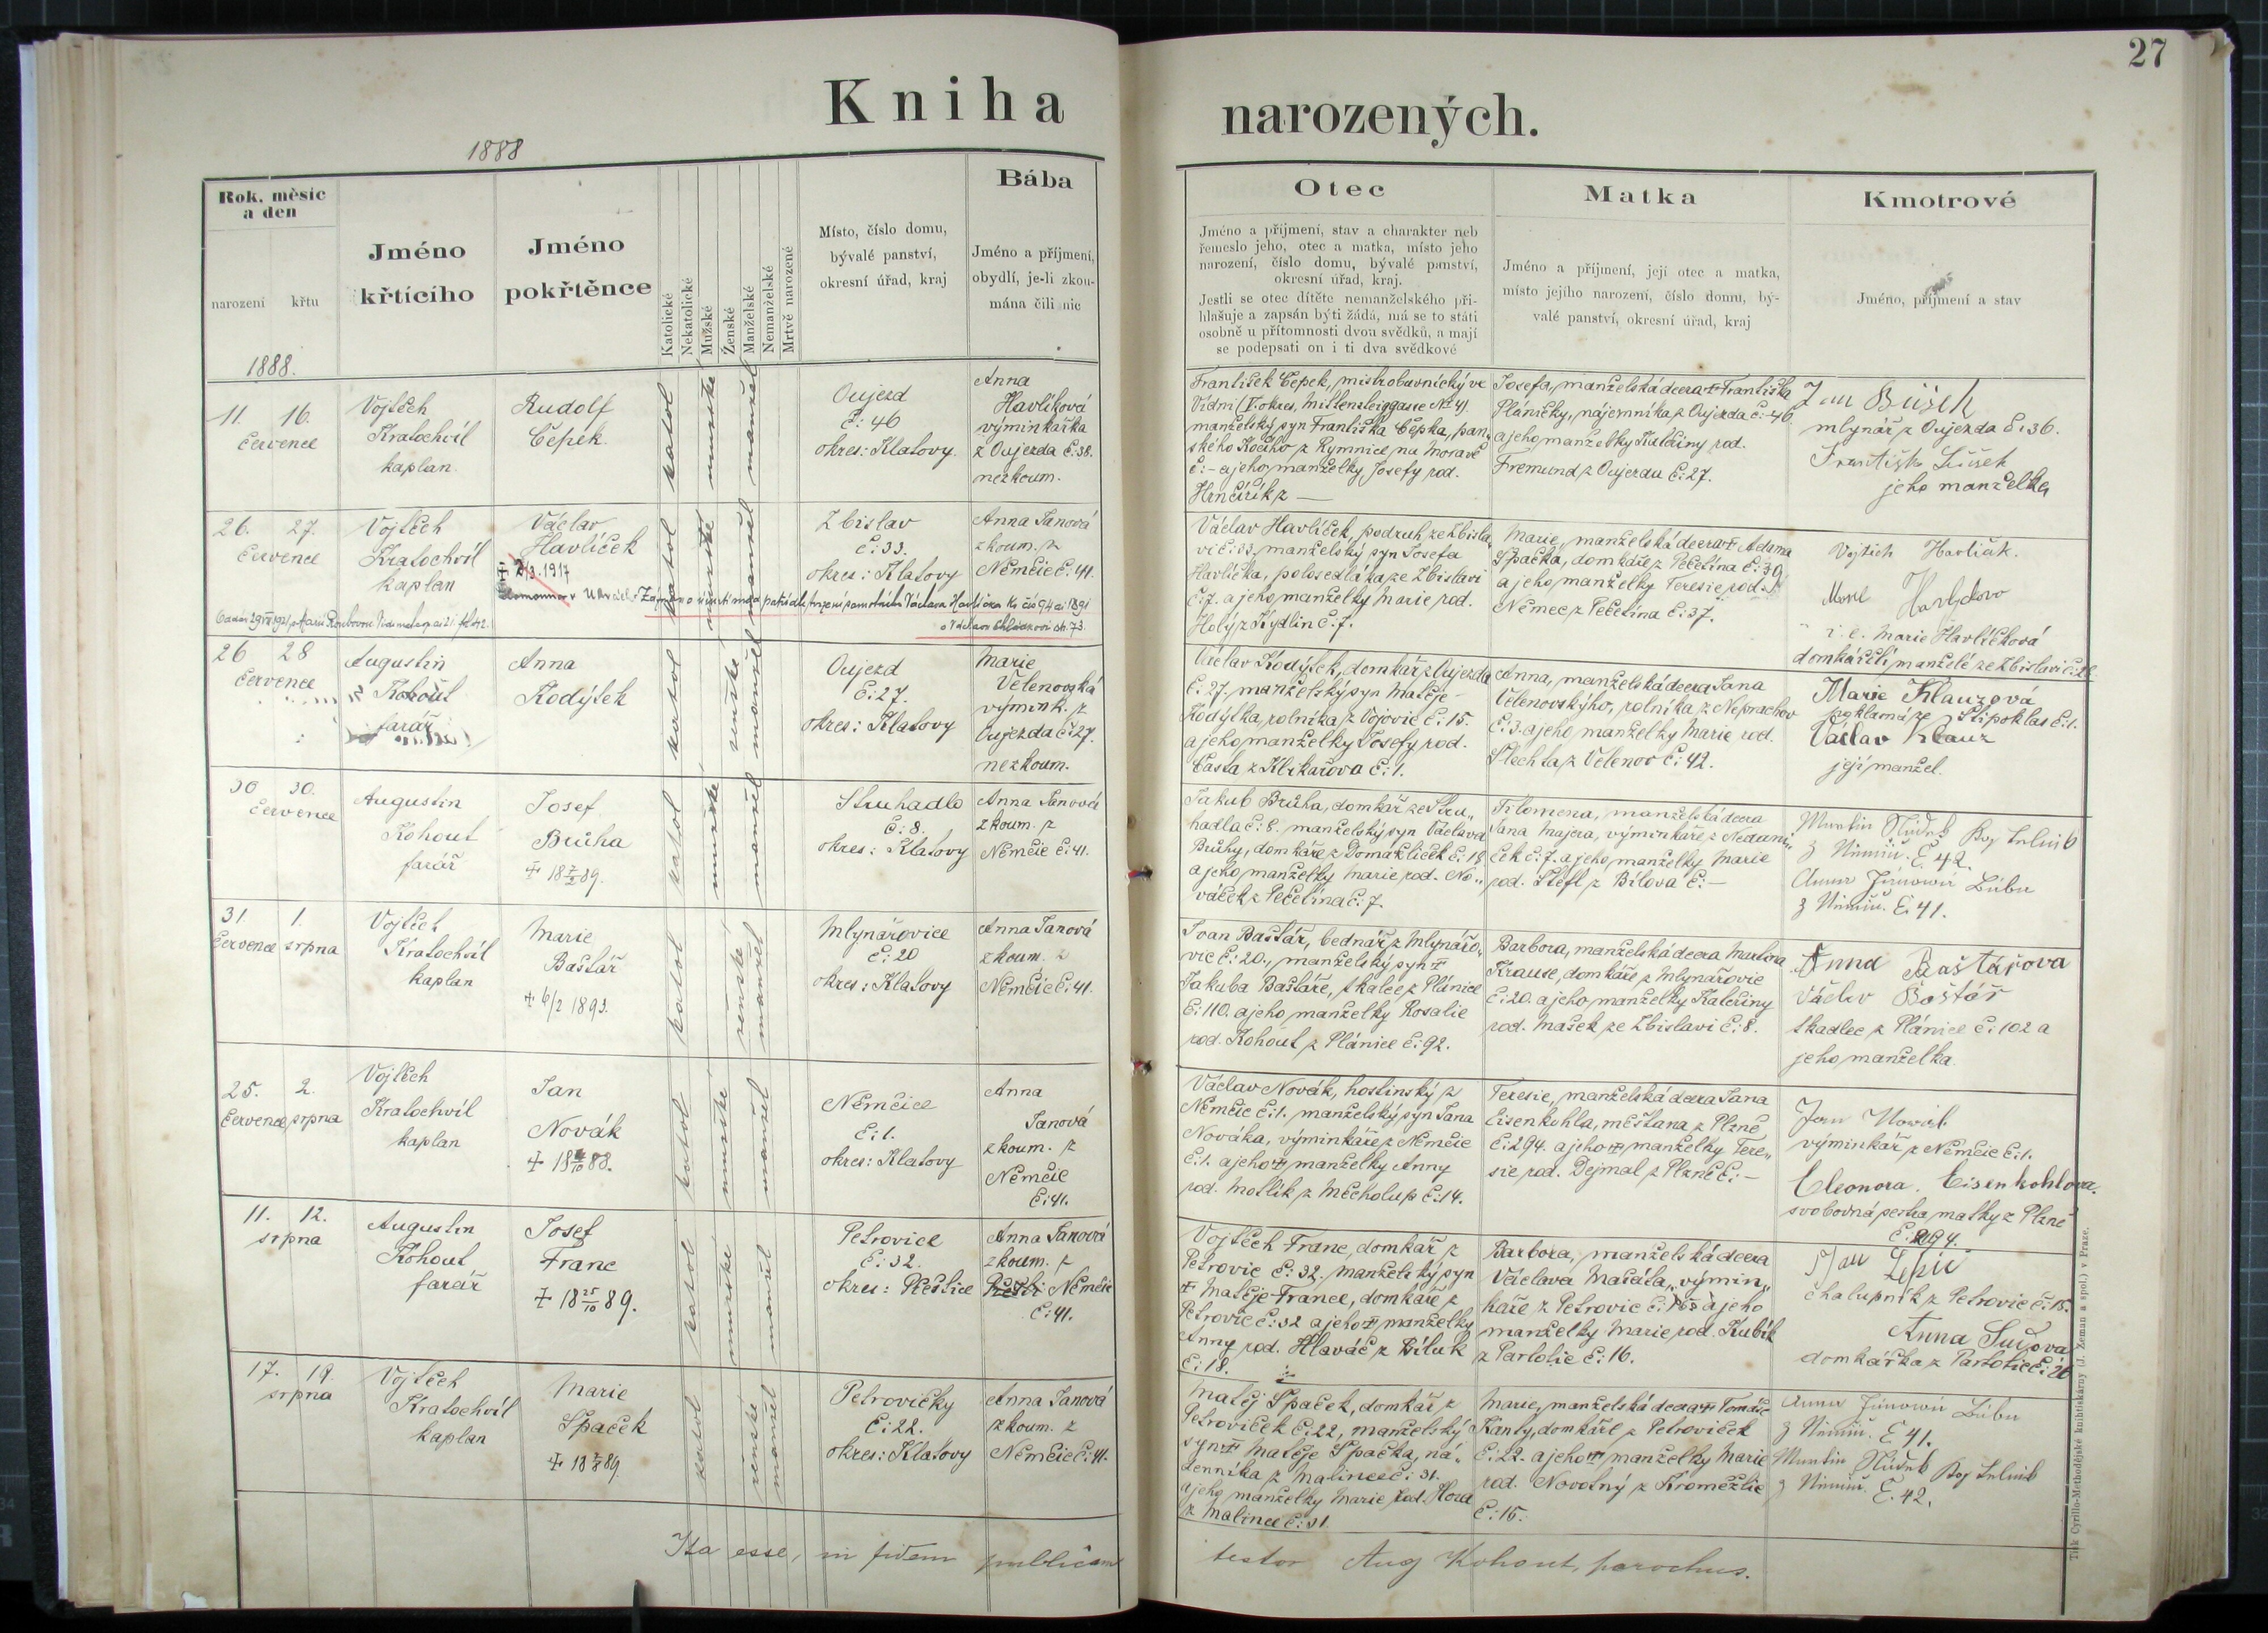 27
Kniha narozených.
1888
Rok, měsíc
a den
narození křtu
1888.
Jméno
křtícího
Jméno
pokřtěnce
Katolické
Nekatolické
Mužské
Ženské
Manželské
Nemanželské
Mrtvě narozené
Místo, číslo domu,
bývalé panství,
okresní úřad, kraj
Bába
Jméno a příjmení,
obydlí, je-li zkou-
mána čili nic
Otec
Jméno a příjmení, stav a charakter neb
řemeslo jeho, otec a matka, místo jeho
narození, číslo domu, bývalé panství,
okresní úřad, kraj.
Jestli se otec dítěte nemanželského při-
hlašuje a zapsán býti žádá, má se to státi
osobně u přítomnosti dvou svědků, a mají
se podepsati on i ti dva svědkové
Matka
Jméno a příjmení, její otec a matka,
místo jejího narození, číslo domu, bý-
valé panství, okresní úřad, kraj
Kmotrové
Jméno, příjmení a stav
11. 16.
července
Vojtěch
Kratochvíl
kaplan.
Rudolf
Čepek.
katol
mužské
manžel
Oujezd
č: 46
okres: Klatovy.
Anna
Havlíková
výminkařka
z Oujezda č: 38.
nezkoum.
František Čepek, mistr obuvnický ve
Vídni (V. okres, Mittersteiggasse No 4)
manželský syn Františka Čepka, pan-
ského kočího z Rymnice na Moravě
č: – a jeho manželky Josefy rod.
Hrnčiřík z —
Josefa, manželská dcera † Františka
Pláničky, nájemníka z Oujezda č: 46
a jeho manželky Kateřiny rod.
Fremund z Oujezda č: 27.
Jan Bušek
mlynář z Oujezda č: 36.
jeho manželka
26. 27.
července
Vojtěch
Kratochvíl
kaplan
Václav
Havlíček
katol
mužské
manžel
Zbislav
č: 33.
okres: Klatovy
Anna Janová
zkoum. z
Němčic č: 41.
Václav Havlíček, podruh ze Zbisla-
vi č: 33, manželský syn Josefa
Havlíčka, polosedláka ze Zbislavi
č: 7. a jeho manželky Marie rod.
Holý z Kydlin č: 7.
Marie, manželská dcera † Adama
Špačka, domkáře z Pečetína č: 39
a jeho manželky Teresie rod.
Němec z Pečetína č: 37.
Vojtěch Havlíček.
i. e. Marie Havlíčková
domkářští manželé ze Zbislavi
26 28
července
Augustin
Kohout
farář
Anna
Kodýtek
katol
ženské
manžel
Oujezd
č: 27.
okres: Klatovy
Marie
Velenovská
výmink. z
Oujezda č: 27.
nezkoum.
Václav Kodýtek, domkář z Oujezda
č: 27. manželský syn Matěje
Kodýtka, rolníka z Vojovic č: 15.
a jeho manželky Josefy rod.
Časta z Kbikařova č: 1.
Anna, manželská dcera Jana
Velenovskýho, rolníka z Neprachov
č: 3. a jeho manželky Marie rod.
Šlechta z Velenov č: 42.
Marie Klauzová
Štipoklas č: 1.
Václav Klauz
její manžel.
30 30.
července
Augustin
Kohout
farář
Josef
Brůha
† 18 7/2 89.
katol
mužské
manžel
Struhadlo
č: 8.
okres: Klatovy
Anna Janová
zkoum. z
Němčic č: 41.
Jakub Brůha, domkář ze Stru-
hadla č: 8. manželský syn Václava
Brůhy, domkáře z Domažliček č: 18
a jeho manželky Marie rod. No-
váček z Pečetína č: 7.
Filomena, manželská dcera
Jana Majera, výminkáře z Nedani-
ček č: 7. a jeho manželky Marie
rod. Štefl z Bílova č: –
č. 42.
č. 41.
31. 1.
července srpna
Vojtěch
Kratochvíl
kaplan
Marie
Baštář
† 6/2 1893.
katol
ženské
manžel
Mlynářovice
č: 20
okres: Klatovy
Anna Janová
zkoum. z
Němčic č: 41.
Ivan Baštář, bednář z Mlynářo-
vic č: 20., manželský syn †
Jakuba Baštáře, tkalce z Plánice
č: 110. a jeho manželky Rosalie
rod. Kohout z Plánice č: 92.
Barbora, manželská dcera Martina
Krause, domkáře z Mlynářovic
č: 20. a jeho manželky Kateřiny
rod. Mašek ze Zbislavi č: 8.
Anna Baštářova
Václav Baštář
tkadlec z Plánice č: 102 a
jeho manželka.
25. 2.
července srpna
Vojtěch
Kratochvíl
kaplan
Jan
Novák
katol
mužské
manžel
Němčice
č: 1.
okres: Klatovy
Anna
Janová
zkoum. z
Němčic
č: 41.
Václav Novák, hostinský z
Němčic č: 1. manželský syn Jana
Nováka, výminkáře z Němčic
č: 1. a jeho † manželky Anny
rod. Motlík z Měcholup č: 14.
Teresie, manželská dcera Jana
Eisenkohla, měšťana z Plzně
č: 294. a jeho † manželky Tere-
sie rod. Dejmal z Plzně č: –
Jan Novák
výminkář z Němčic č: 1.
Eleonora. Eisenkohlova.
svobodná sestra matky z Plzně
č: 294.
11. 12.
srpna
Augustin
Kohout
farář
Josef
Franc
† 18 25/10 89.
katol
mužské
manžel
Petrovice
č: 32.
okres: Přeštice
Anna Janová
zkoum. z
Němčic
č: 41.
Vojtěch Franc, domkář z
Petrovic č: 32. manželský syn
† Matěje France, domkáře z
Petrovic č: 32 a jeho † manželky
Anny rod. Hlaváč z Bíluk
č: 18.
Barbora, manželská dcera
Václava Mašáta, výmin-
káře z Petrovic a jeho
manželky Marie rod. Kubík
z Partotic č: 16.
Jan
chalupník z Petrovic č: 15.
Anna
domkářka z Partotic
17. 19.
srpna
Vojtěch
Kratochvíl
kaplan
Marie
Špaček
katol
ženské
manžel
Petrovičky
č: 22.
okres: Klatovy
Anna Janová
zkoum. z
Němčic č: 41.
Matěj Špaček, domkář z
Petroviček č: 22, manželský
syn † Matěje Špačka, ná-
denníka z Malinec č: 31.
a jeho manželky Marie rod. Hora
z Malinec č: 31
Marie, manželská dcera † Tomáše
Kanty, domkáře z Petroviček
č: 22. a jeho † manželky Marie
rod. Novotný z Kroměždic
č: 15.
č. 41.
č. 42.
Ita esse, in fidem publicam testor Aug Kohout, parochus.
Tisk Cyrillo-Methodějské knihtiskárny (J. Zeman a spol.) v Praze.